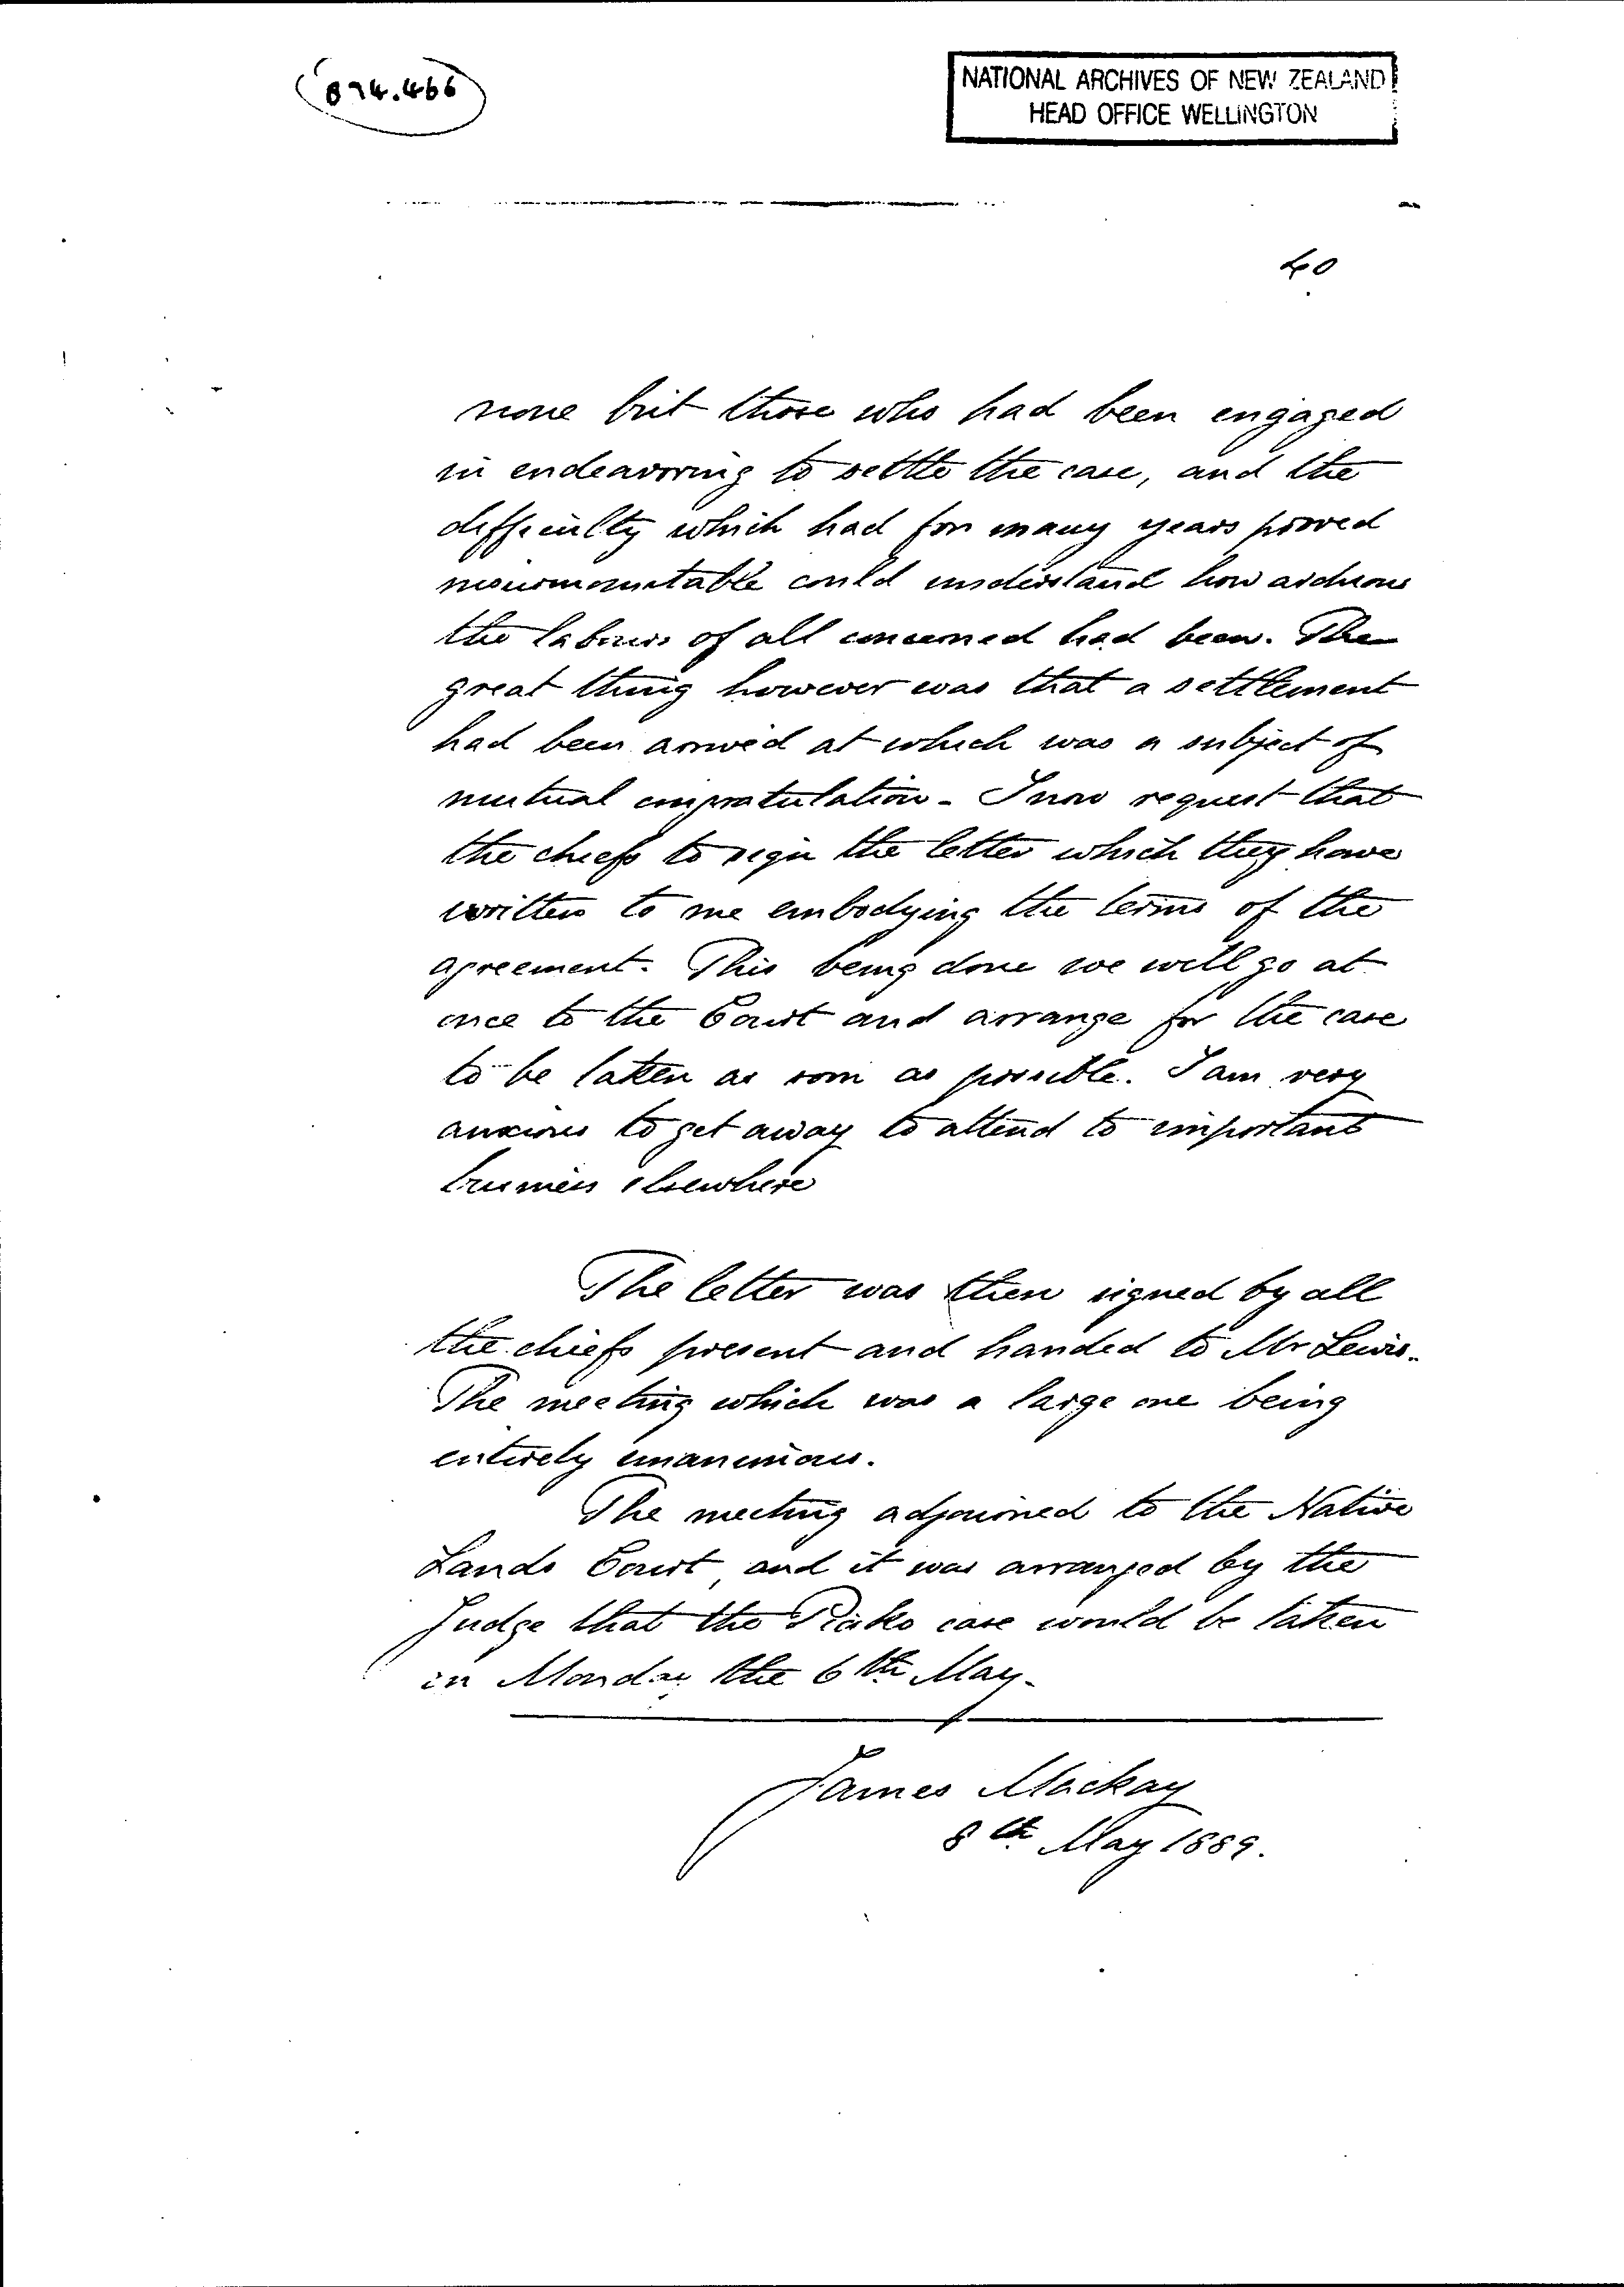 894.466
NATIONAL ARCHIVES OF NEW ZEALAND
HEAD OFFICE WELLINGTON
40
none but those who had been engaged
in endeavoring to settle the case, and the
difficulty which had for many years proved
insurmountable could understand how arduous
the labours of all concerned had been. The
great thing however was that a settlement
had been arrived at which was a subject of
mutual congratulation - I now request that
the chiefs to sign the letter which they have
written to me embodying the terms of the
agreement. This being done we will go at
once to the Court and arrange for the case
to be taken as soon as possible. I am very
anxious to get away to attend to important
business elsewhere
The letter was then signed by all
the chiefs present and handed to Mr Lewis.
The meeting which was a large one being
entirely unanimous.
The meeting adjourned to the Native
Lands Court, and it was arranged by the
Judge that the Piako case would be taken
on Monday the 6th May.
James Mackay
8th May 1889.